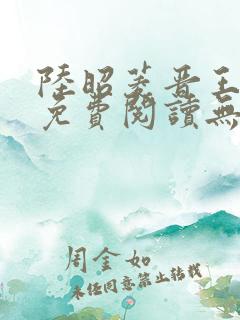 陸昭菱晋王
免費閱讀無
周金如
未经同意禁止转载